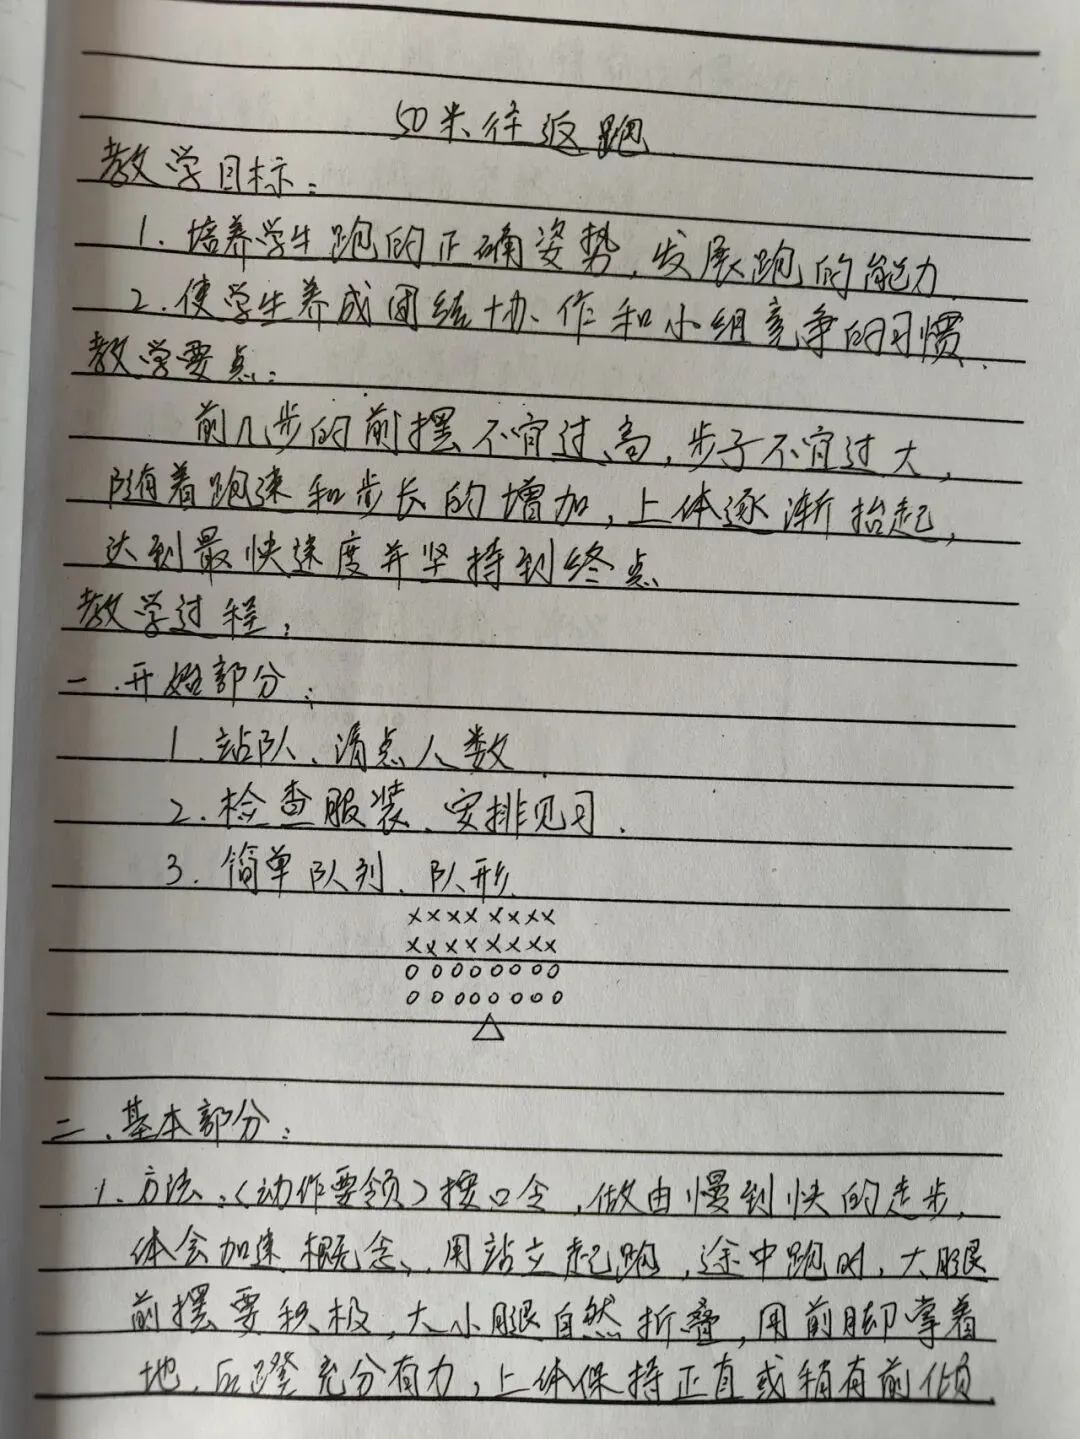 50米往返跑
教学目标：
1. 培养学生跑的正确姿势，发展跑的能力.
2. 使学生养成团结协作和小组竞争的习惯.
教学要点：
前几步的前摆不宜过高，步子不宜过大，
随着跑速和步长的增加，上体逐渐抬起，
达到最快速度并坚持到终点
教学过程：
一、开始部分：
1. 站队、清点人数
2. 检查服装、安排见习.
3. 简单队列、队形
××××××××
××××××××
00000000
00000000
△
二、基本部分：
1. 方法：（动作要领）按口令，做由慢到快的走步，
体会加速概念、用站立起跑，途中跑时，大腿
前摆要积极，大小腿自然折叠，用前脚掌着
地，后蹬充分有力，上体保持正直或稍有前倾